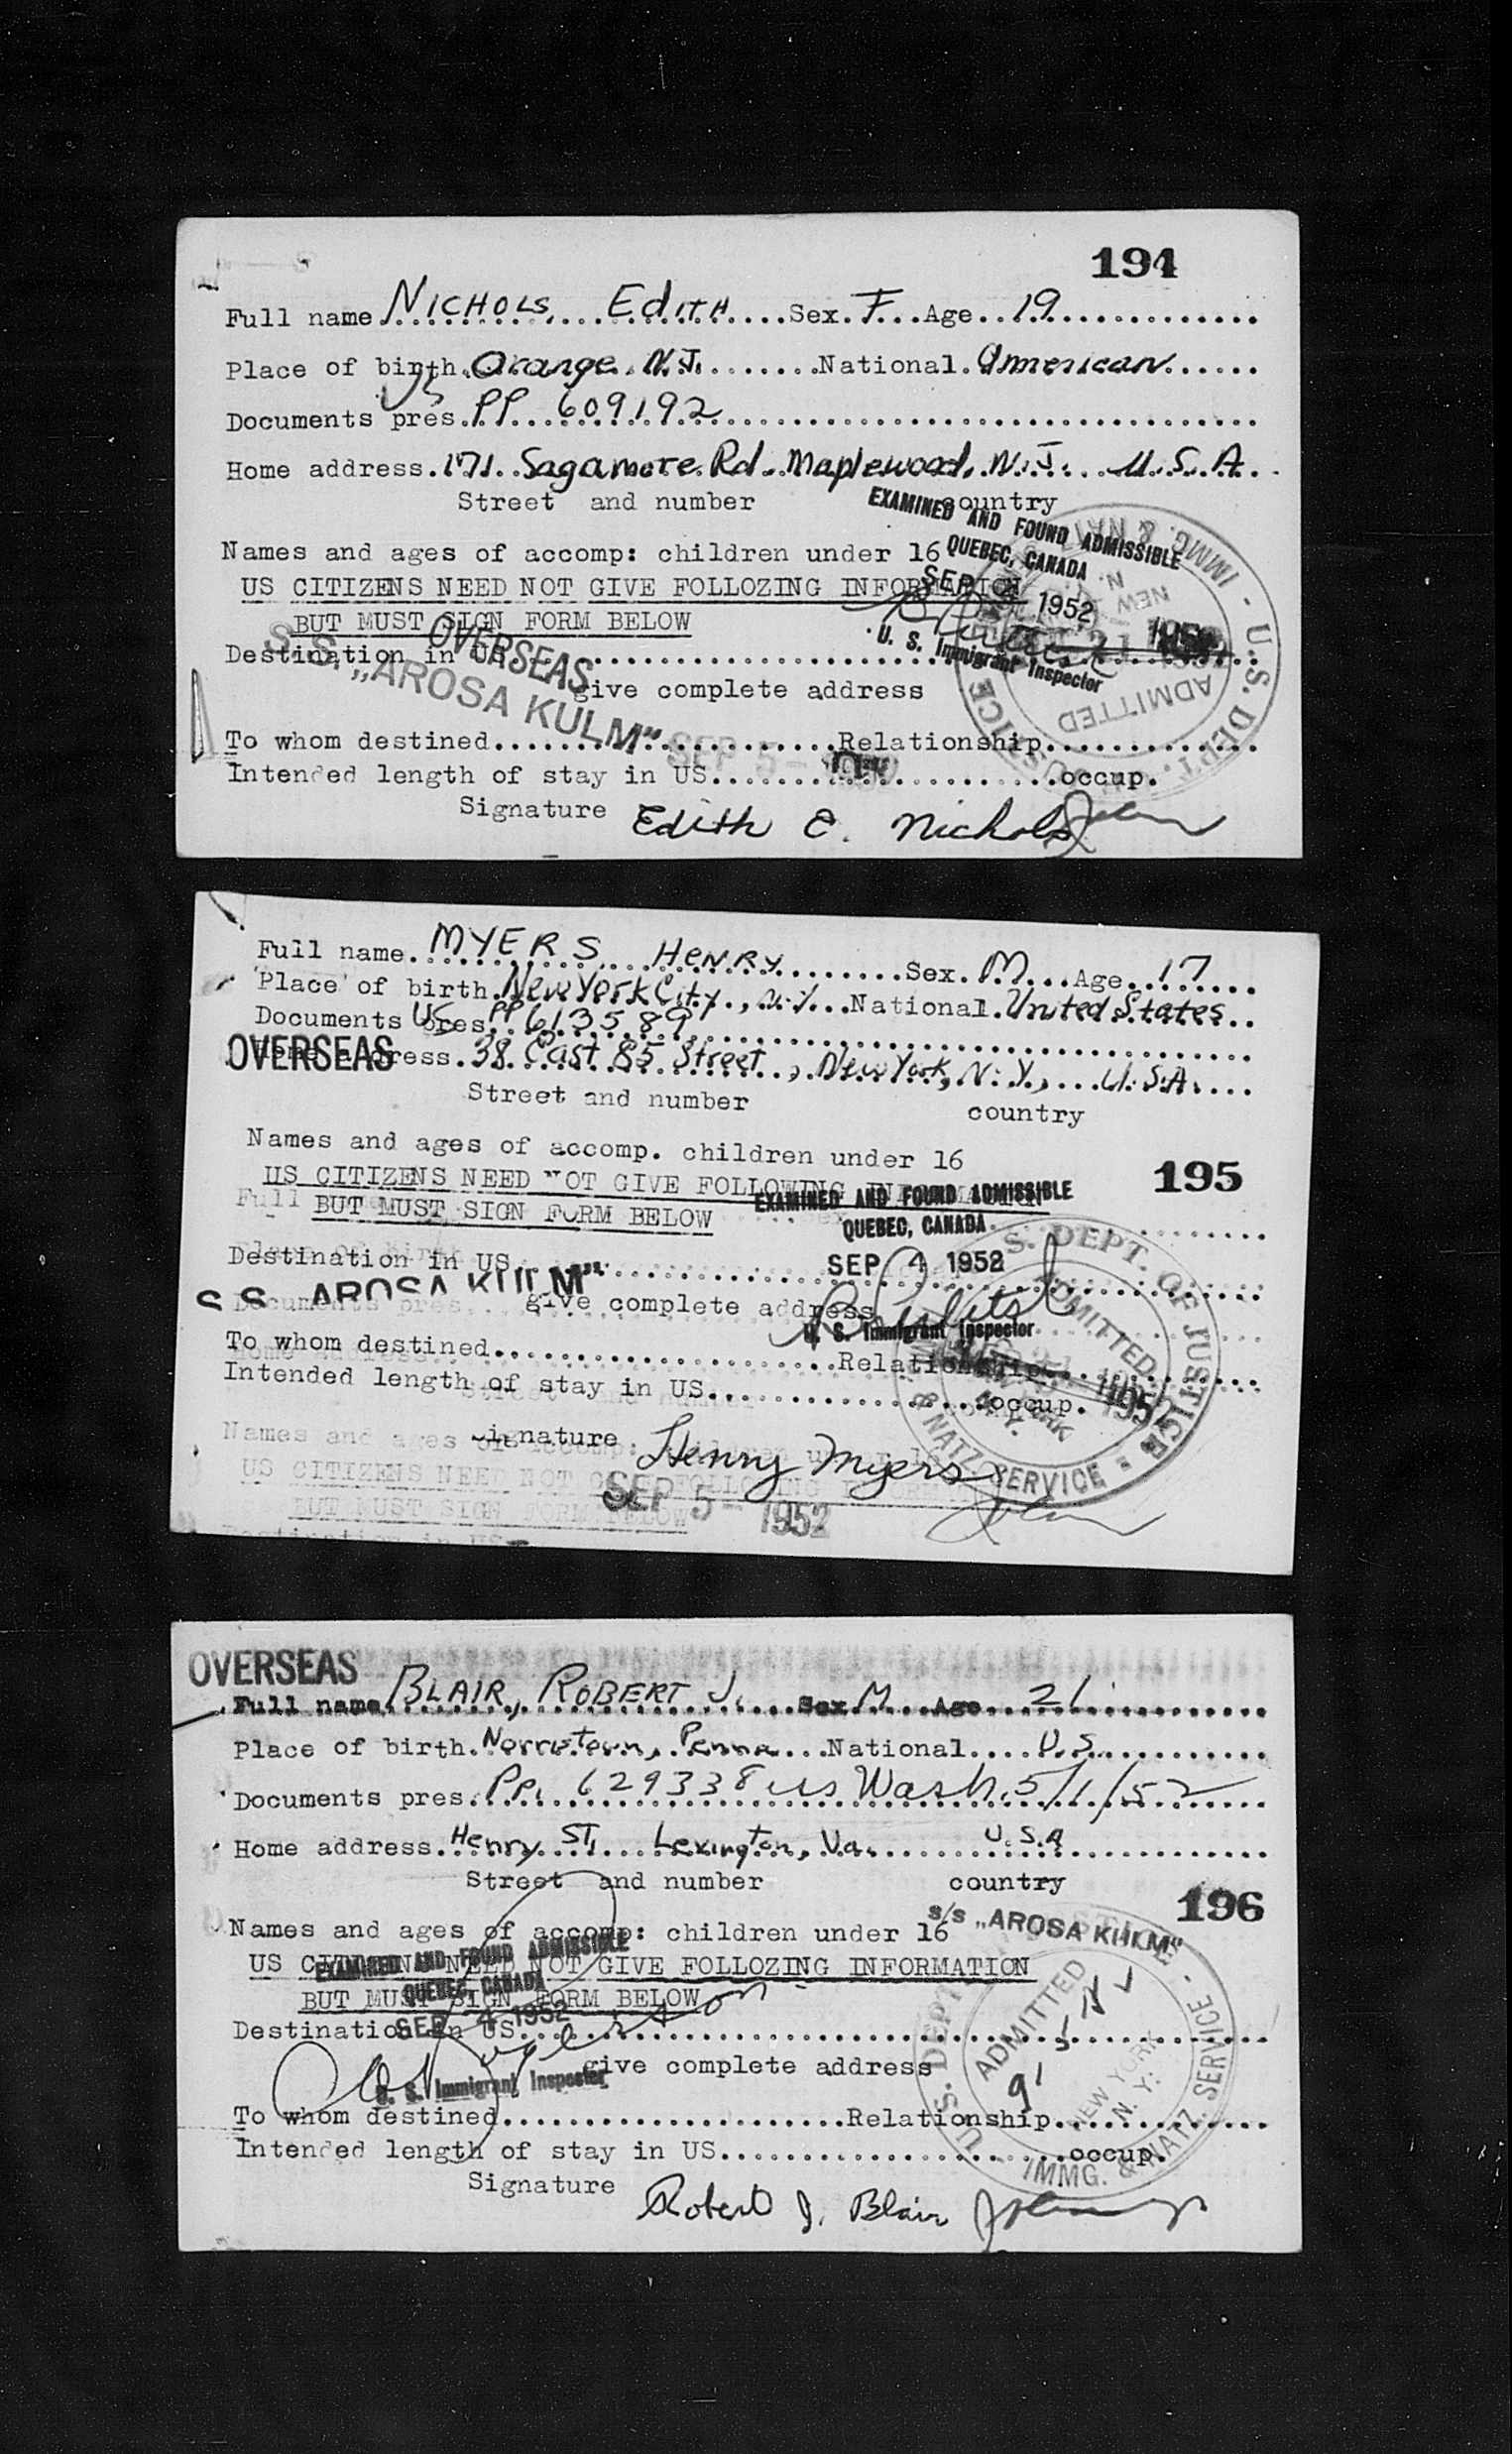 194
Full name NICHOLS, EDITH Sex. F Age 19
Place of birth. Orange, N.J. National. American
US
Documents pres. PP 609192
Home address. 171 Sagamore Rd. Maplewood, N.J. U.S.A.
Street and number country
EXAMINED AND FOUND ADMISSIBLE
QUEBEC, CANADA
SEP 1952
U. S. Immigrant Inspector
Names and ages of accomp: children under 16
US CITIZENS NEED NOT GIVE FOLLOZING INFORMATION
BUT MUST SIGN FORM BELOW
OVERSEAS
Destination in US
S.S. „AROSA KULM"
give complete address
U.S. DEPT. JUSTICE IMMG. & NATZ
ADMITTED
NEW
To whom destined Relationship
SEP 5 -
Intended length of stay in US occup.
Signature Edith E. Nichols
Full name. MYERS, HENRY Sex. M Age. 17
Place of birth. New York City, N.Y. National. United States
Documents pres. US PP 613589
OVERSEAS
address. 38 East 85 Street, New York, N.Y., U.S.A.
Street and number country
Names and ages of accomp. children under 16
195
US CITIZENS NEED NOT GIVE FOLLOWING
Full
BUT MUST SIGN FORM BELOW
EXAMINED AND FOUND ADMISSIBLE
QUEBEC, CANADA
SEP 4 1952
U. S. Immigrant Inspector
Destination in US
S.S. AROSA KULM"
give complete address
S. DEPT. OF JUSTICE
& NATZ. SERVICE
ADMITTED
1952
To whom destined Relationship
Intended length of stay in US occup.
Names and ages of accomp: children under
Signature Henry Myers
US CITIZENS NEED NOT GIVE FOLLOZING
BUT MUST SIGN FORM BELOW
SEP 5 - 1952
Destination in US
OVERSEAS
Full name BLAIR, ROBERT J. Sex M Age 21
Place of birth. Norristown, Penna National U.S.
Documents pres. PP. 629338 us Wash. 5/1/52
Home address. Henry St. Lexington, Va. U.S.A
Street and number country
196
Names and ages of accomp: children under 16
s/s „AROSA KULM"
US CITIZENS NEED NOT GIVE FOLLOZING INFORMATION
BUT MUST SIGN FORM BELOW
EXAMINED AND FOUND ADMISSIBLE
QUEBEC, CANADA
SEP 4 1952
U. S. Immigrant Inspector
Destination in US
give complete address
U.S. DEPT IMMG. & NATZ SERVICE
ADMITTED
NEW YORK
N. Y.
To whom destined Relationship
Intended length of stay in US occup.
Signature Robert J. Blair